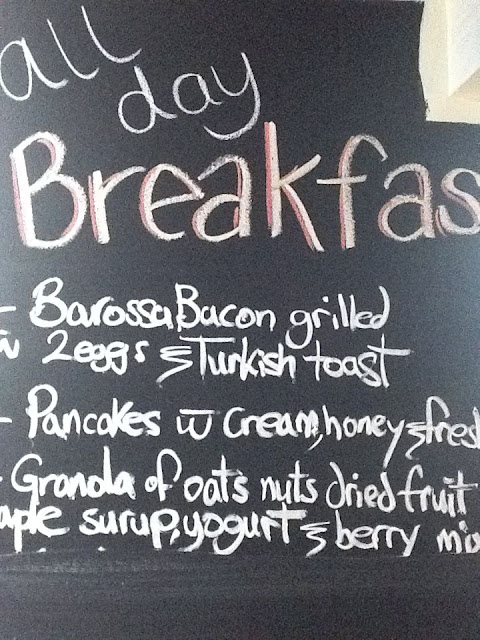 all
day
Breakfas
- Barossa Bacon grilled
w 2 eggs & Turkish toast
- Pancakes w Cream, honey & fres
- Granola of oats nuts dried fruit
aple surup, yogurt & berry mix